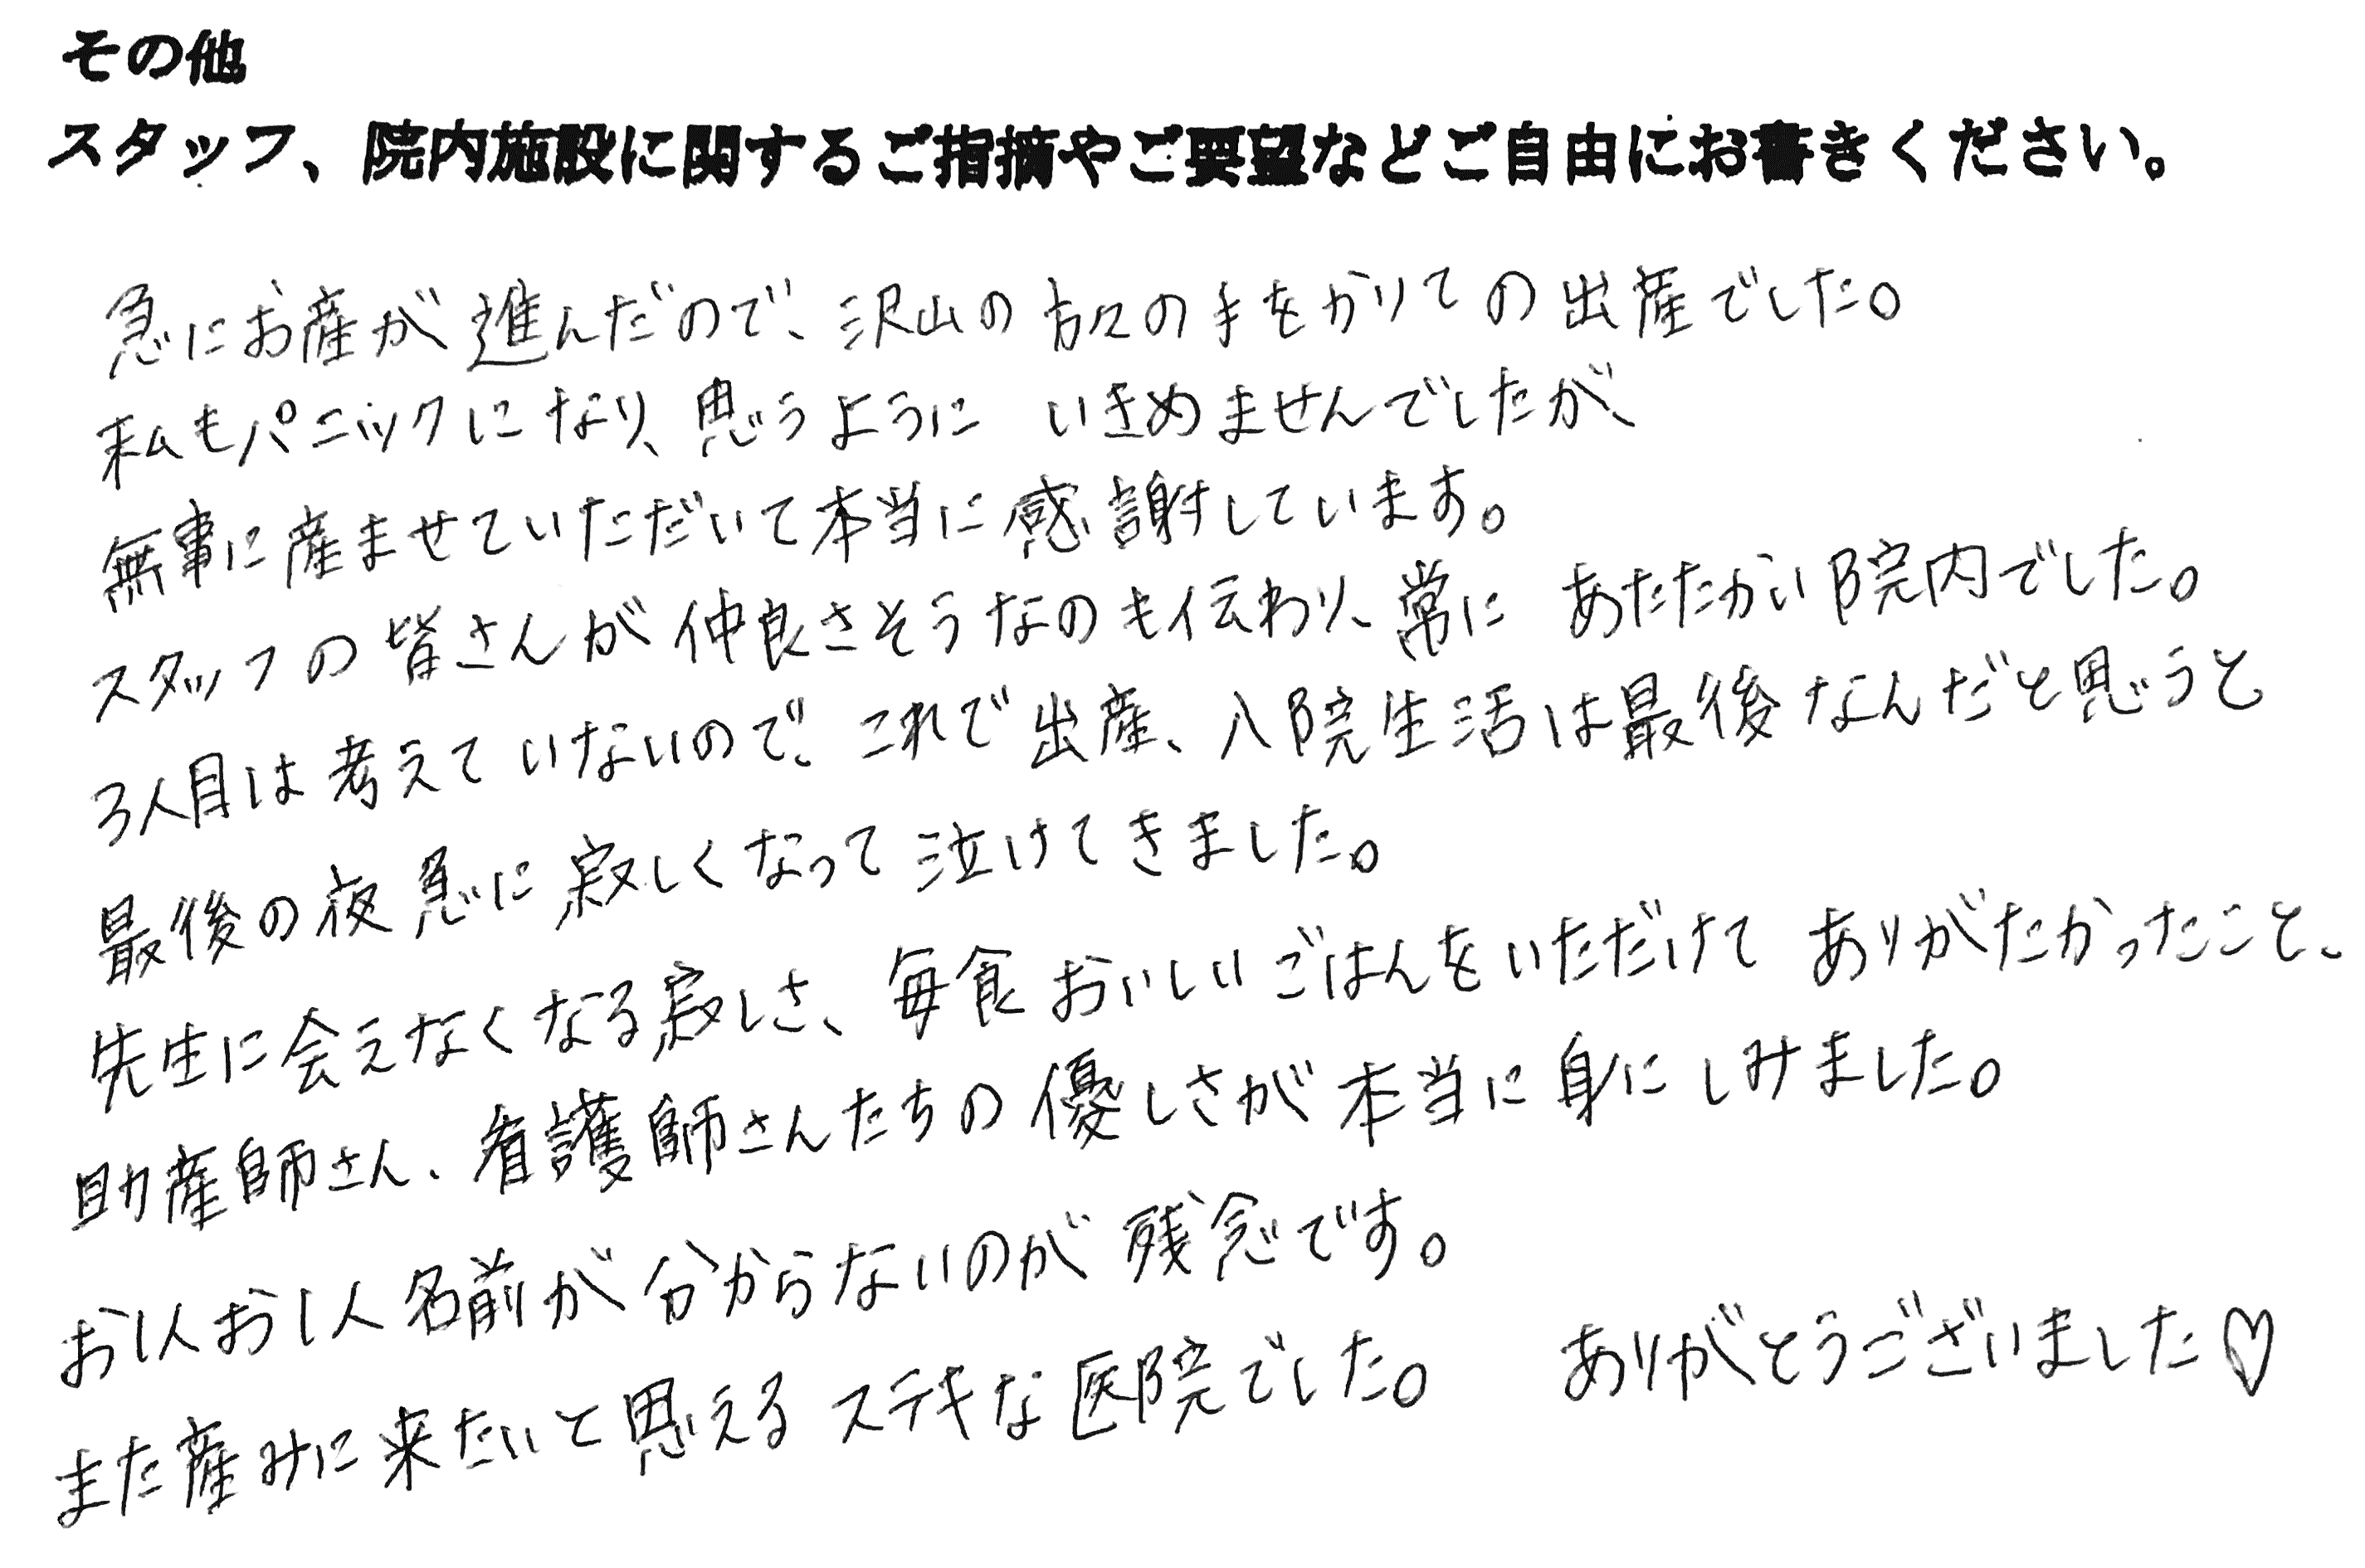 その他
スタッフ、院内施設に関するご指摘やご要望などご自由にお書きください。
急にお産が進んだので、沢山の方々の手をかりての出産でした。
私もパニックになり、思うように いきめませんでしたが、
無事に産ませていただいて本当に感謝しています。
スタッフの皆さんが仲良さそうなのも伝わり、常に あたたかい院内でした。
3人目は考えていないので、これで出産、入院生活は最後なんだと思うと
最後の夜急に寂しくなって泣けてきました。
先生に会えなくなる寂しさ、毎食おいしいごはんをいただけて ありがたかったこと、
助産師さん、看護師さんたちの優しさが本当に身にしみました。
お1人お1人名前が分からないのが残念です。
また産みに来たいと思えるステキな医院でした。 ありがとうございました♡